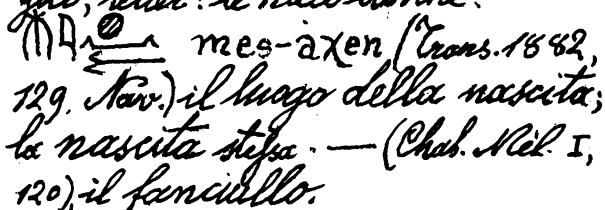 mes-aχen (Trans. 1882,
129. Nav.) il luogo della nascita;
la nascita stessa. — (Chab. Mél. I,
120), il fanciullo.